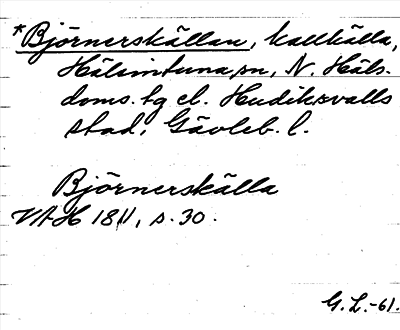 *Björnerskällan, kallkälla,
Hälsintuna sn, N. Häls.
doms. tg el. Hudiksvalls
stad, Gävleb. l.
Björnerskälla
VAH 1811, s. 30.
G. L. -61.